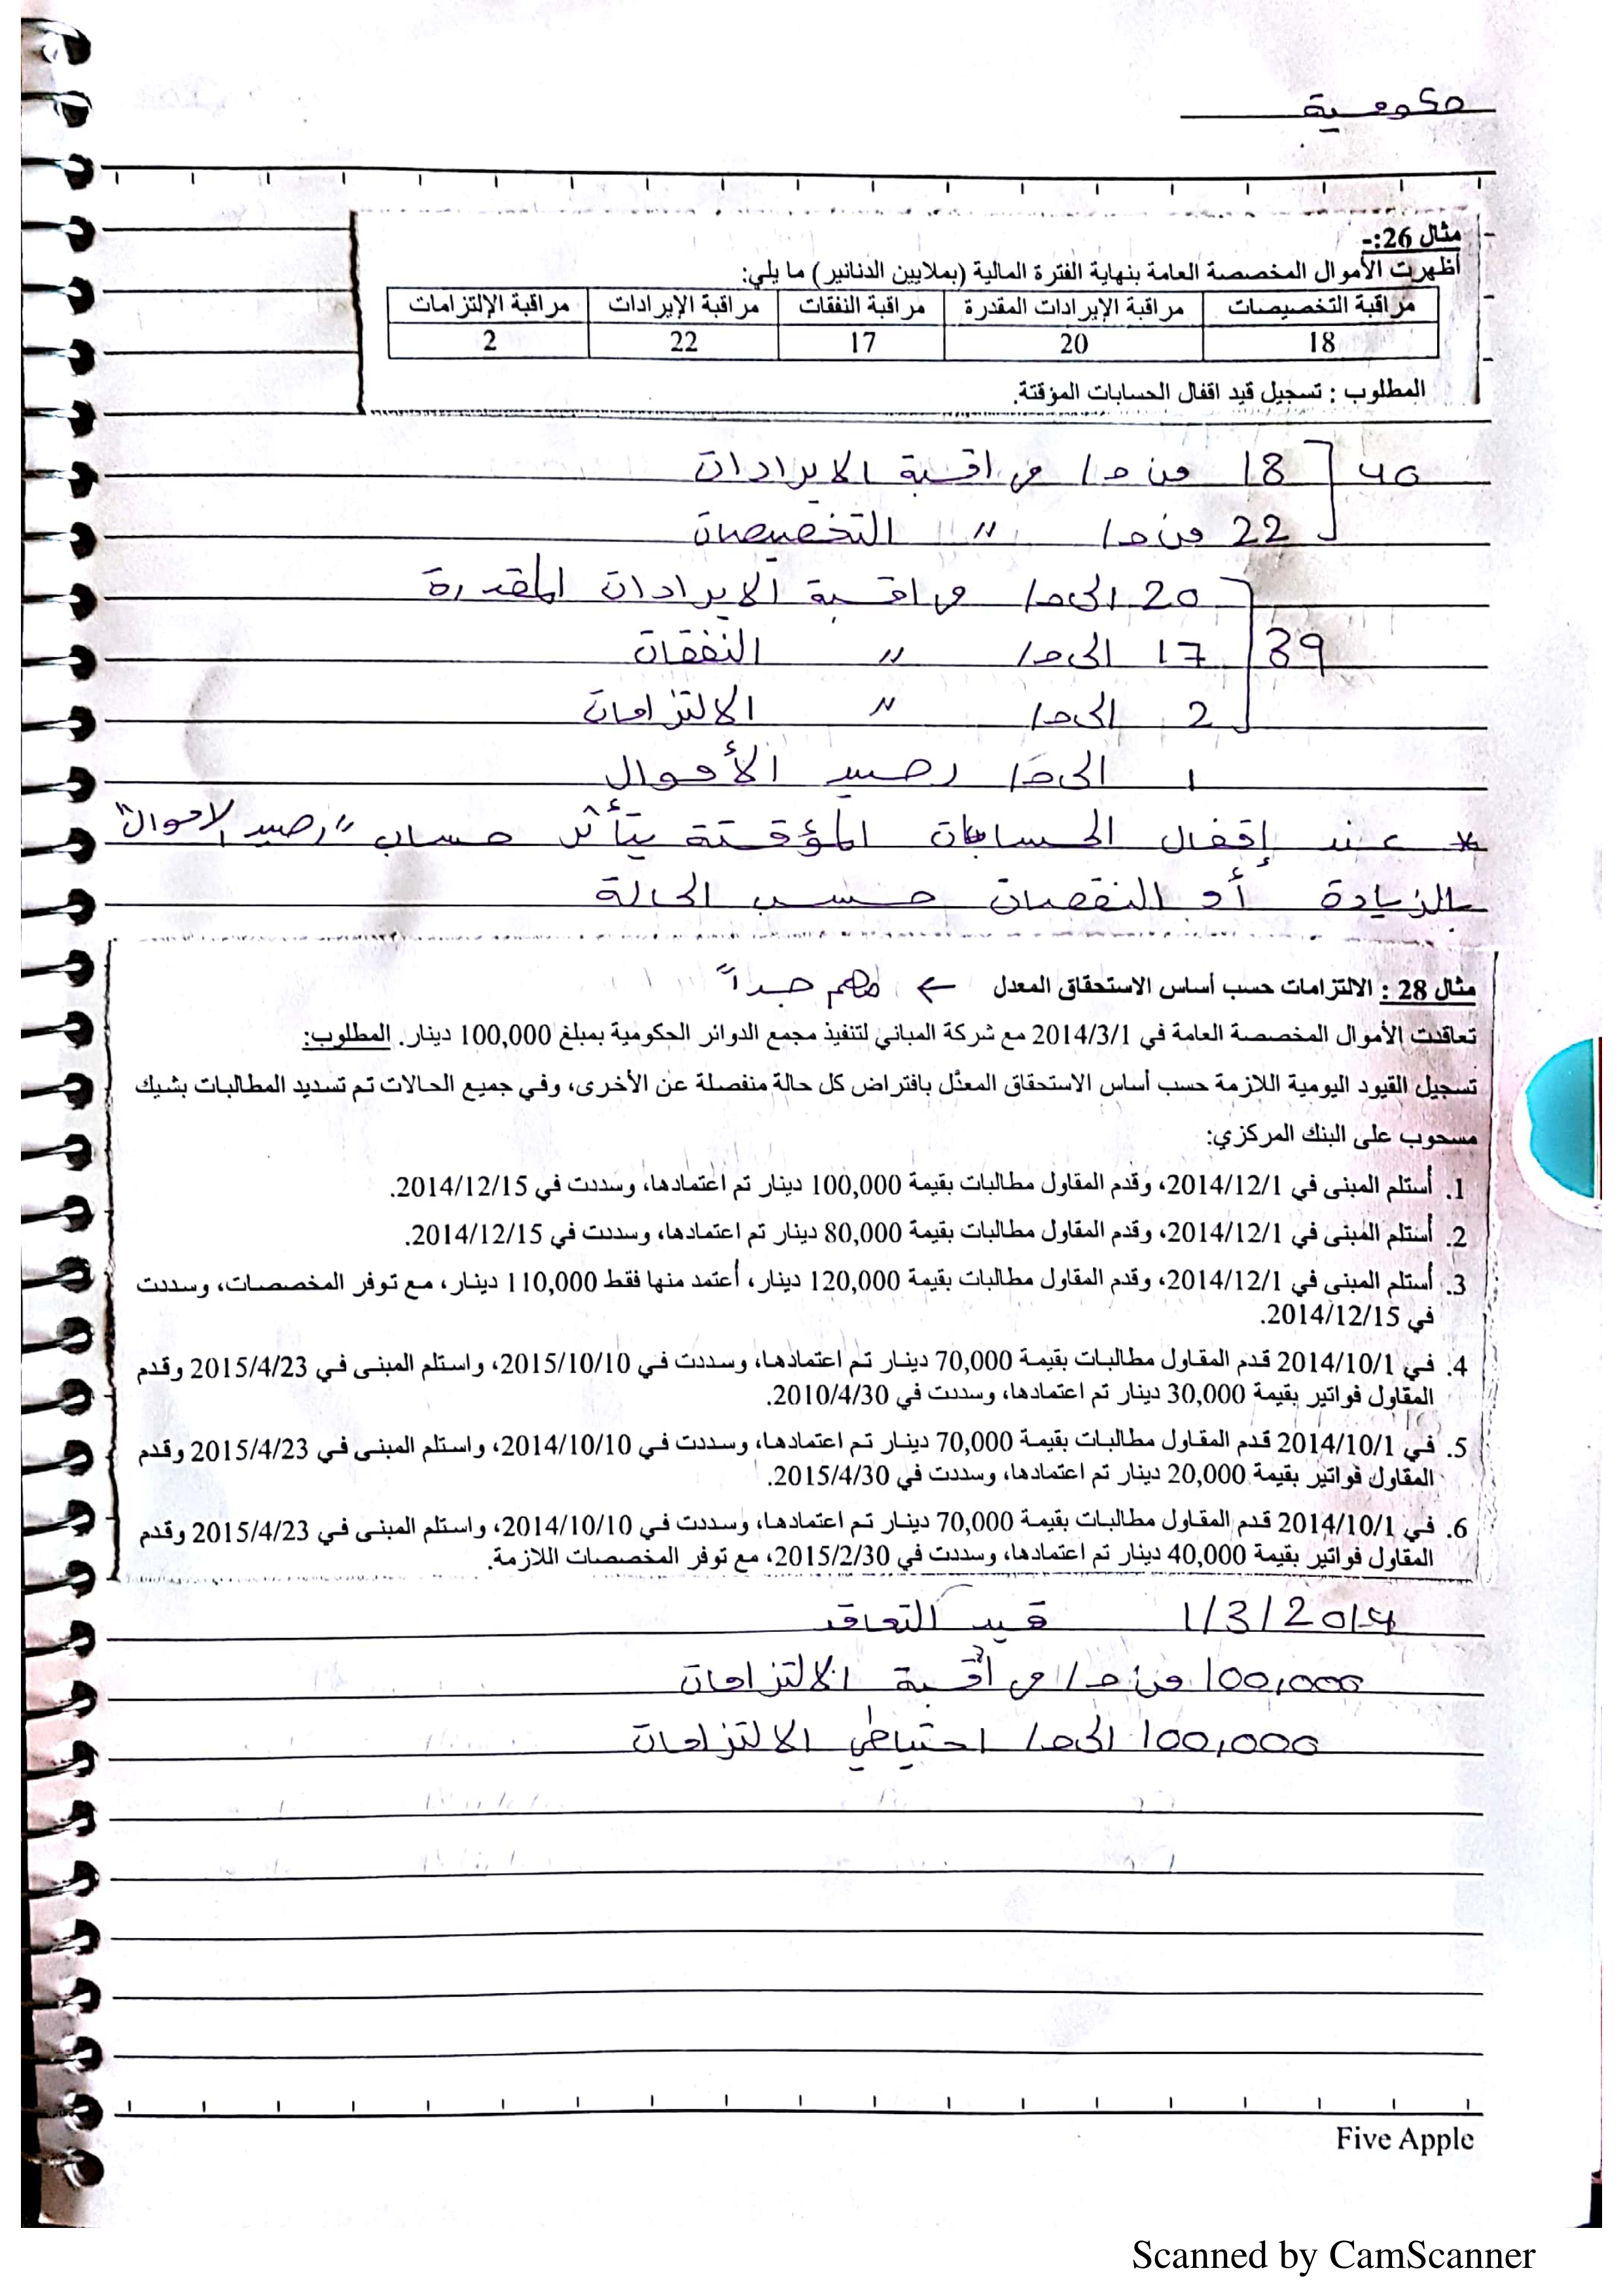 حكومية
مثال 26:-
أظهرت الأموال المخصصة العامة بنهاية الفترة المالية (بملايين الدنانير) ما يلي:
مراقبة التخصيصات مراقبة الإيرادات المقدرة مراقبة النفقات مراقبة الإيرادات مراقبة الإلتزامات
18 20 17 22 2
المطلوب : تسجيل قيد اقفال الحسابات المؤقتة.
40 18 من ح/ مراقبة الايرادات
22 من ح/ " التخصيصات
20 الى ح/ مراقبة الايرادات المقدرة
39 17 الى ح/ " النفقات
2 الى ح/ " الالتزامات
1 الى ح/ رصيد الأموال
* عند إقفال الحسابات المؤقتة يتأثر حساب "رصيد الاموال"
بالزيادة أو النقصان حسب الحالة
مثال 28 : الالتزامات حسب أساس الاستحقاق المعدل ← مهم جداً
تعاقدت الأموال المخصصة العامة في 2014/3/1 مع شركة المباني لتنفيذ مجمع الدوائر الحكومية بمبلغ 100,000 دينار. المطلوب:
تسجيل القيود اليومية اللازمة حسب أساس الاستحقاق المعدّل بافتراض كل حالة منفصلة عن الأخرى، وفي جميع الحالات تم تسديد المطالبات بشيك
مسحوب على البنك المركزي:
1. أستلم المبنى في 2014/12/1، وقدم المقاول مطالبات بقيمة 100,000 دينار تم اعتمادها، وسددت في 2014/12/15.
2. أستلم المبنى في 2014/12/1، وقدم المقاول مطالبات بقيمة 80,000 دينار تم اعتمادها، وسددت في 2014/12/15.
3. أستلم المبنى في 2014/12/1، وقدم المقاول مطالبات بقيمة 120,000 دينار، أعتمد منها فقط 110,000 دينار، مع توفر المخصصات، وسددت
في 2014/12/15.
4. في 2014/10/1 قدم المقاول مطالبات بقيمة 70,000 دينار تم اعتمادها، وسددت في 2015/10/10، واستلم المبنى في 2015/4/23 وقدم
المقاول فواتير بقيمة 30,000 دينار تم اعتمادها، وسددت في 2010/4/30.
5. في 2014/10/1 قدم المقاول مطالبات بقيمة 70,000 دينار تم اعتمادها، وسددت في 2014/10/10، واستلم المبنى في 2015/4/23 وقدم
المقاول فواتير بقيمة 20,000 دينار تم اعتمادها، وسددت في 2015/4/30.
6. في 2014/10/1 قدم المقاول مطالبات بقيمة 70,000 دينار تم اعتمادها، وسددت في 2014/10/10، واستلم المبنى في 2015/4/23 وقدم
المقاول فواتير بقيمة 40,000 دينار تم اعتمادها، وسددت في 2015/2/30، مع توفر المخصصات اللازمة.
1/3/2014 قيد التعاقد
100,000 من ح/ مراقبة الالتزامات
100,000 الى ح/ احتياطي الالتزامات
Five Apple
Scanned by CamScanner